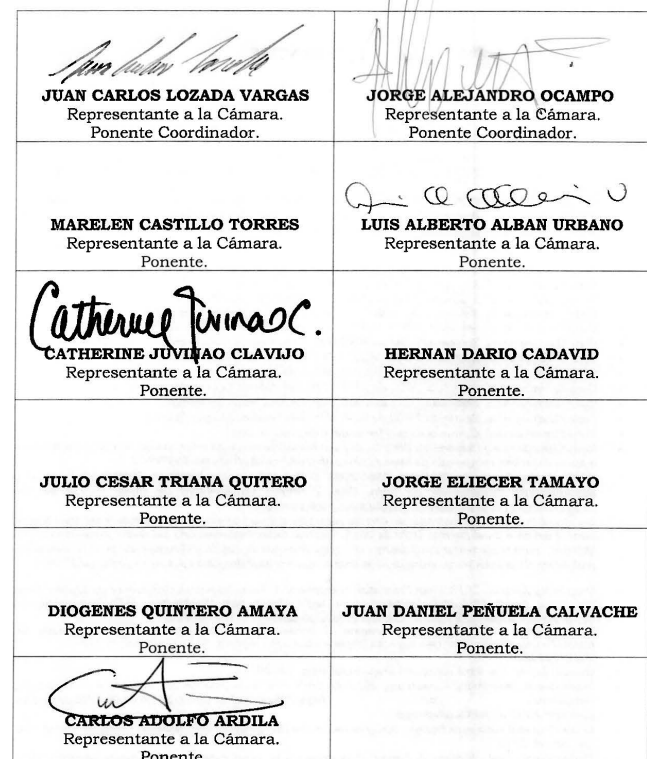 JUAN CARLOS LOZADA VARGAS
Representante a la Cámara.
Ponente Coordinador.
JORGE ALEJANDRO OCAMPO
Representante a la Cámara.
Ponente Coordinador.
MARELEN CASTILLO TORRES
Representante a la Cámara.
Ponente.
LUIS ALBERTO ALBAN URBANO
Representante a la Cámara.
Ponente.
Catherine Juvinao C.
CATHERINE JUVINAO CLAVIJO
Representante a la Cámara.
Ponente.
HERNAN DARIO CADAVID
Representante a la Cámara.
Ponente.
JULIO CESAR TRIANA QUITERO
Representante a la Cámara.
Ponente.
JORGE ELIECER TAMAYO
Representante a la Cámara.
Ponente.
DIOGENES QUINTERO AMAYA
Representante a la Cámara.
Ponente.
JUAN DANIEL PEÑUELA CALVACHE
Representante a la Cámara.
Ponente.
CARLOS ADOLFO ARDILA
Representante a la Cámara.
Ponente